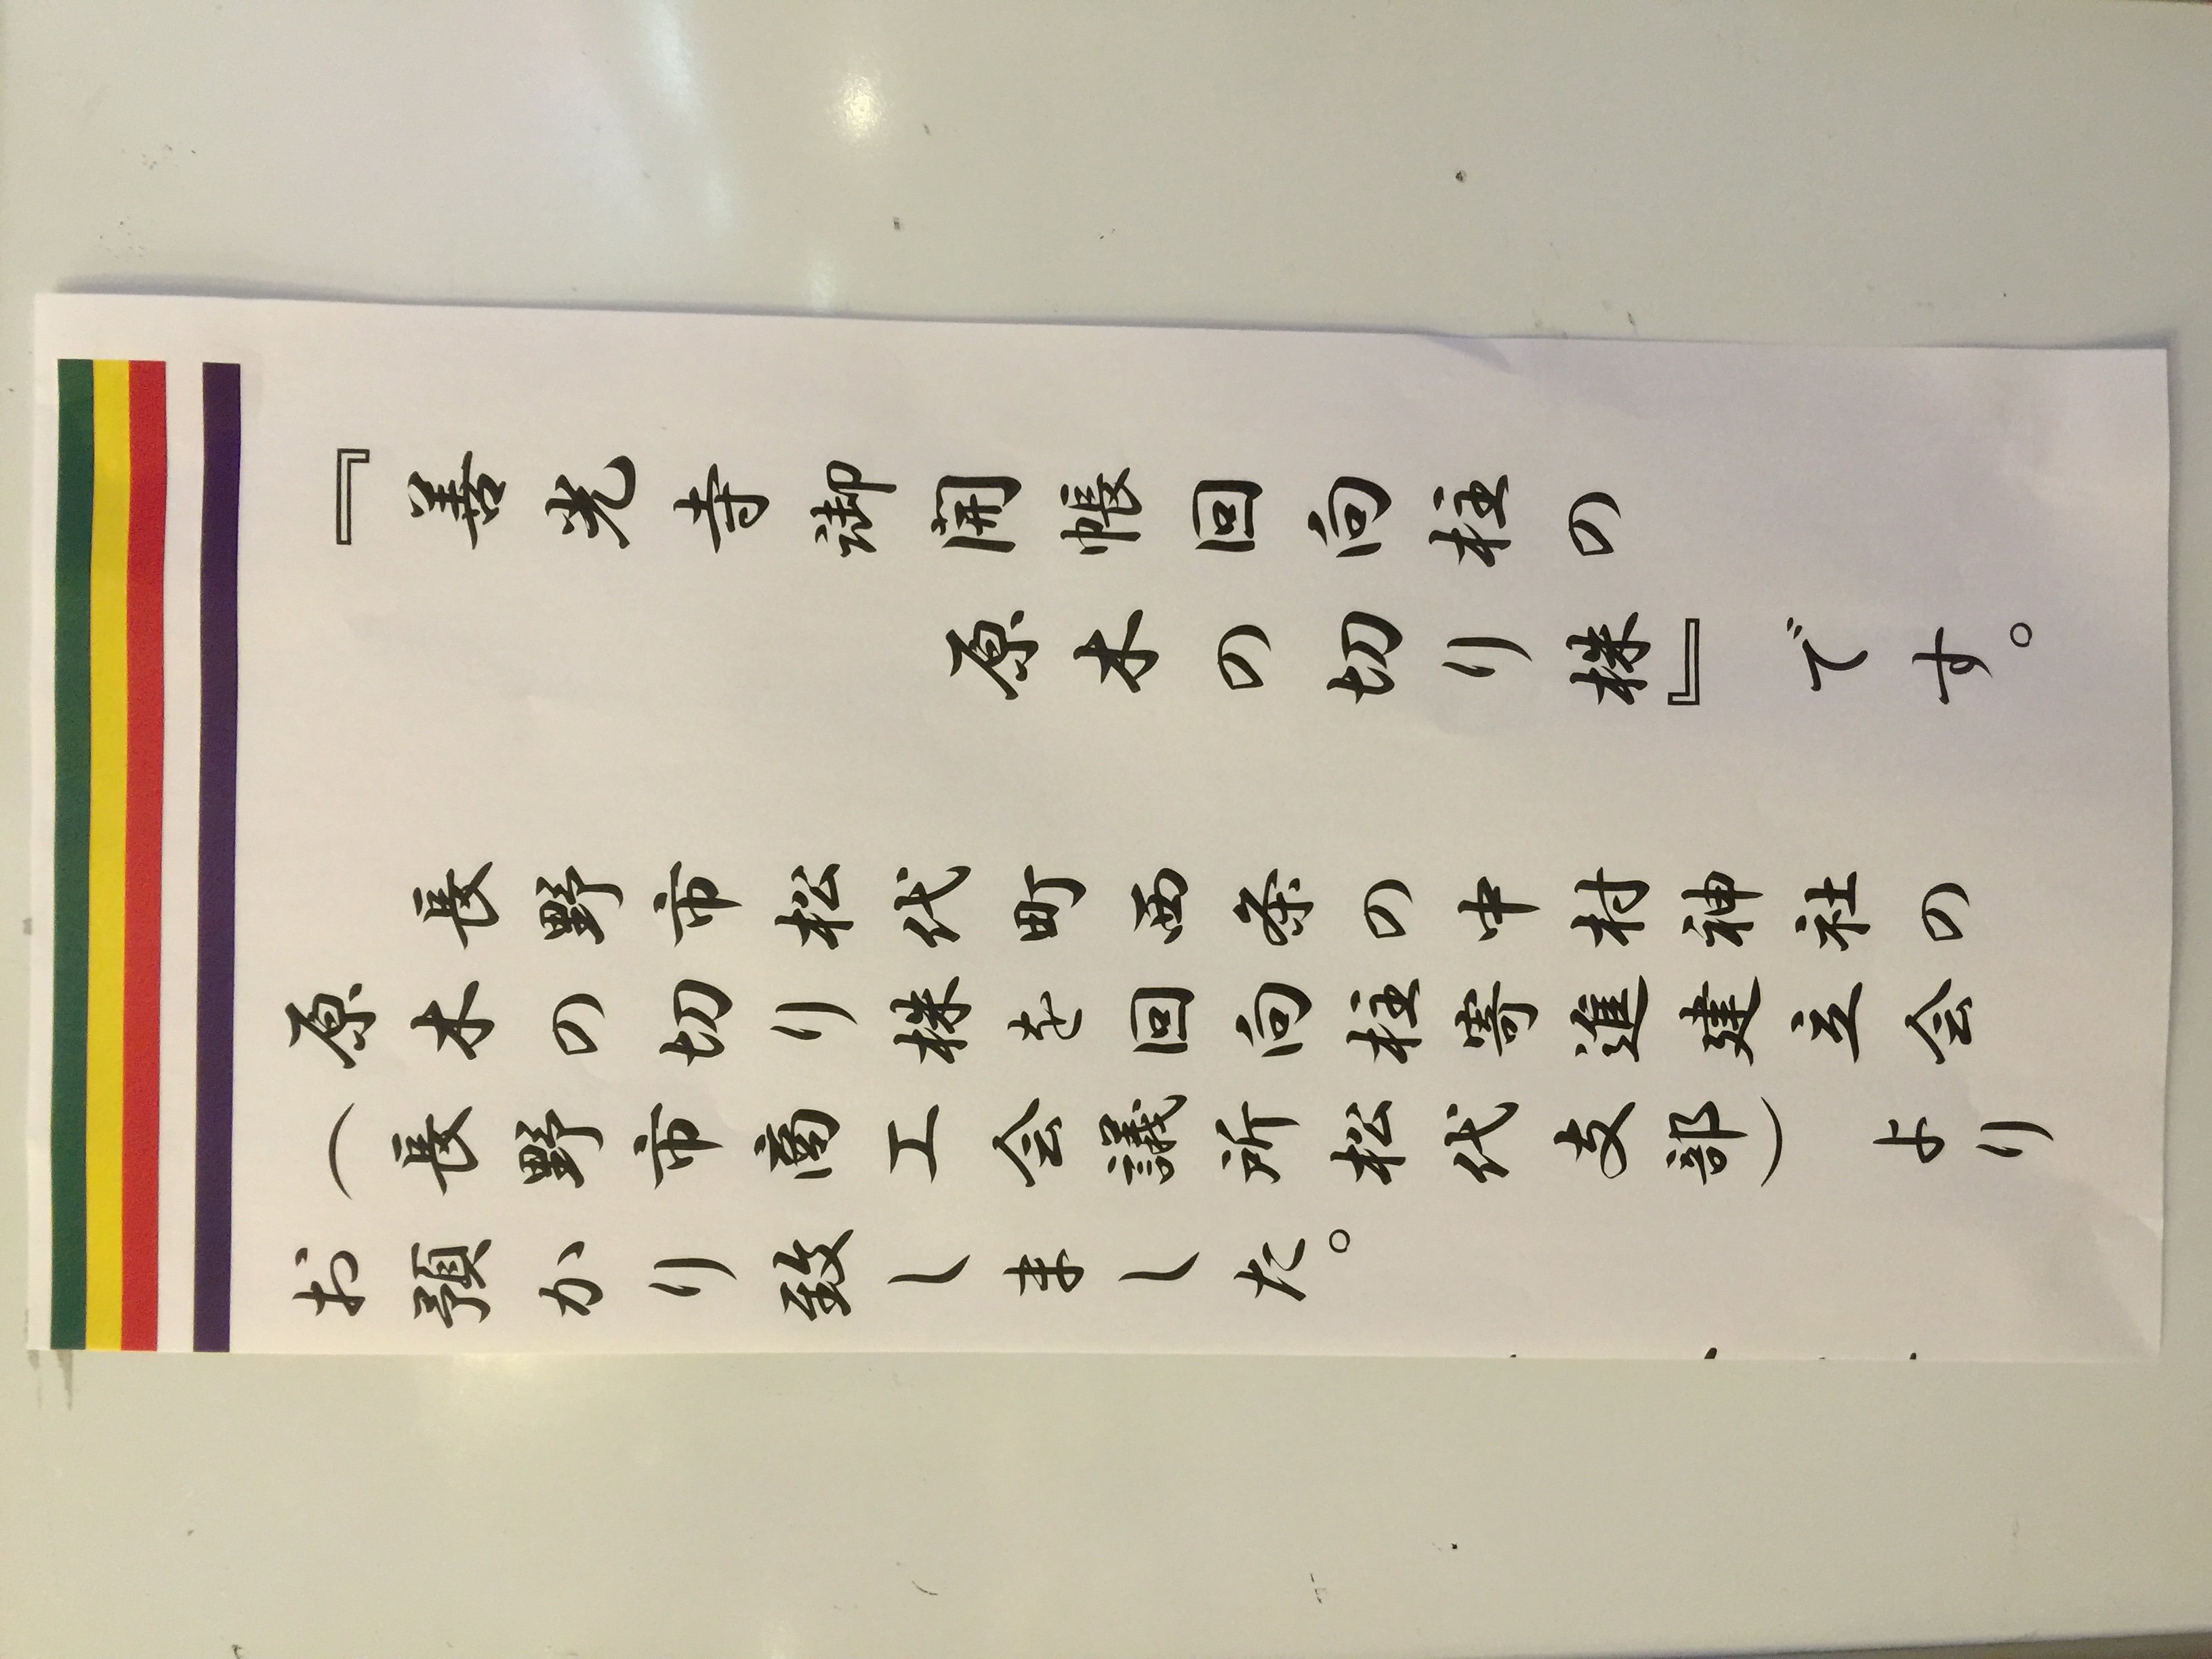 『善光寺御開帳回向柱の
原木の切り株』です。
長野市松代町西条の中村神社の
原木の切り株を回向柱寄進建立会の
(長野市商工会議所松代支部)より
お預かり致しました。